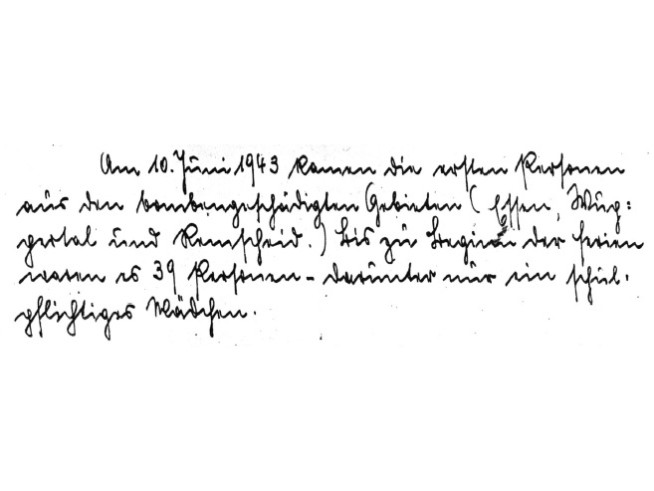 Am 10. Juni 1943 kamen die ersten Personen
aus den bombengeschädigten Gebieten (Essen, Wup=
pertal und Remscheid.) Bis zu Beginn der Ferien
waren es 39 Personen – darunter nur ein schul-
pflichtiges Mädchen.